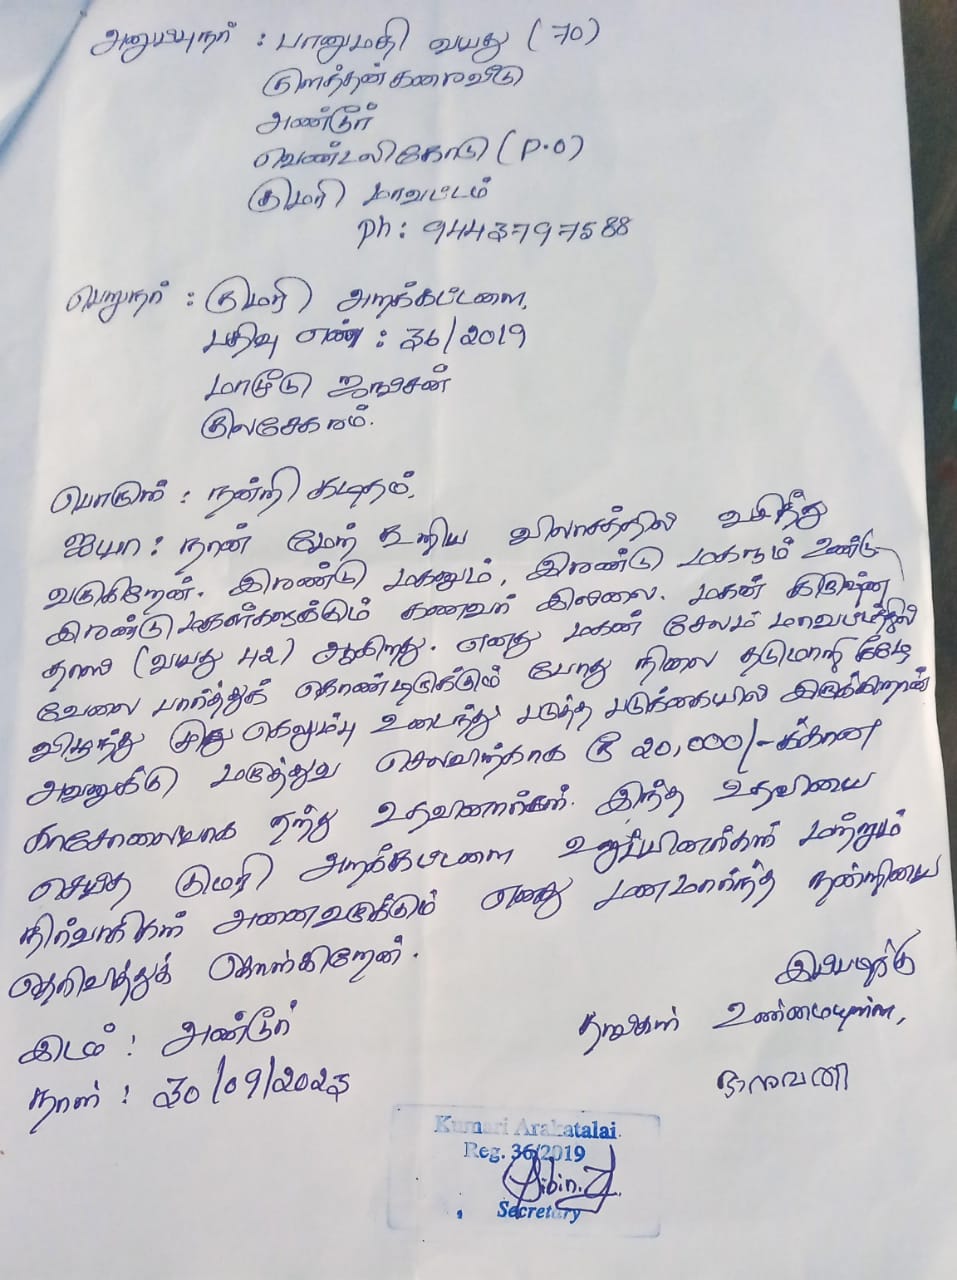 அனுப்புநர் : பானுமதி வயது (70)
குளத்தன்கரைவீடு
அண்டூர்
வெண்டலிகோடு (P.O)
குமரி மாவட்டம்
Ph: 9443797588
பெறுநர் : குமரி அறக்கட்டளை,
பதிவு எண் : 36/2019
மாமூடு ஜங்சன்
குலசேகரம்.
பொருள் : நன்றி கடிதம்.
ஐயா : நான் மேற் கூறிய விலாசத்தில் வசித்து
வருகிறேன். இரண்டு மகனும், இரண்டு மகளும் உண்டு
இரண்டு மகள்களுக்கும் கணவர் இல்லை. மகன் கிருஷ்ண
தாஸ் (வயது 42) ஆகிறது. எனது மகன் சேலம் மாவட்டத்தில்
வேலை பார்த்துக் கொண்டிருக்கும் போது நிலை தடுமாறி கீழே
விழுந்து முது கெலும்பு உடைந்து படுத்த படுக்கையில் இருக்கிறான்
அவனுக்கு மருத்துவ செலவிற்காக ரூ 20,000/-க்கான
காசோலையாக தந்து உதவினார்கள். இந்த உதவியை
செய்த குமரி அறக்கட்டளை உறுப்பினர்கள் மற்றும்
நிர்வாகிகள் அனைவருக்கும் எனது மனமார்ந்த நன்றியை
தெரிவித்துக் கொள்கிறேன்.
இப்படிக்கு
இடம் : அண்டூர்
தங்கள் உண்மையுள்ள,
நாள் : 30/09/2023
Kumari Arakatalai
Reg. 36/2019
Sibin. J.
Secretary